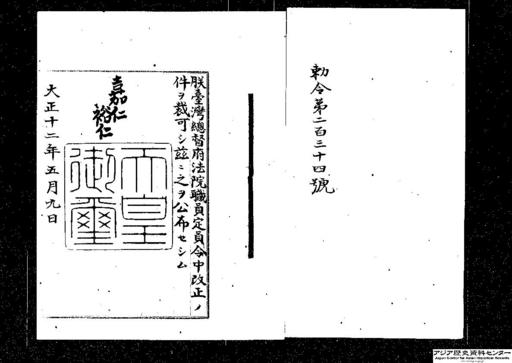 勅令第二百三十四號
朕臺灣總督府法院職員定員令中改正ノ
件ヲ裁可シ玆ニ之ヲ公布セシム
嘉仁
裕仁
天皇
御璽
大正十二年五月九日
アジア歴史資料センター
Japan Center for Asian Historical Records